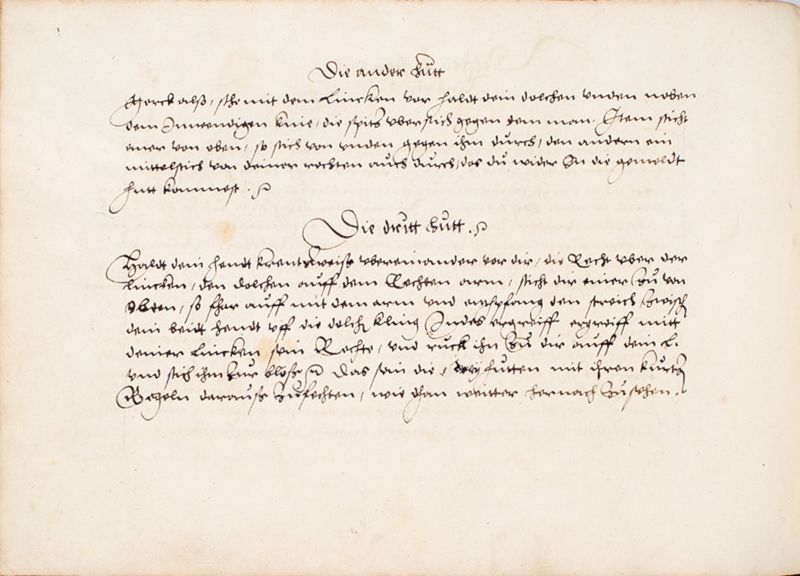 Die ander hütt
Merck also, sthe mit dem Lincken vor haldt dein dolchen vnden neben
dem Inwendigen knie, die spitz vbersich gegen dem man. Item sticht
einer von oben, so stich von vnden gegen ihm durch, den andern ein
mittelstich von deiner rechten auch durch, das du wider In die gemeldt
hutt kommest.
Die dritt hutt.
Haldt dein hendt kreutzweiß vbereinander vor dir, die Recht vber der
lincken, den dolchen auff dem Rechten arm, sticht dir einer zu von
Oben, so fhar auff mit dem arm vnd entpfang den streich zwisch
dein beidt hendt vff die dolch kling Indes ergreiff ergreiff mitt
deiner lincken sein Rechte, vnd ruck ihn zu dir auff dein L.
vnd stich ihm zur blöße Das sein die drey hutten mit ihren kurtz
Regeln darauß zufechten, wie than weitter hernach zusehen.